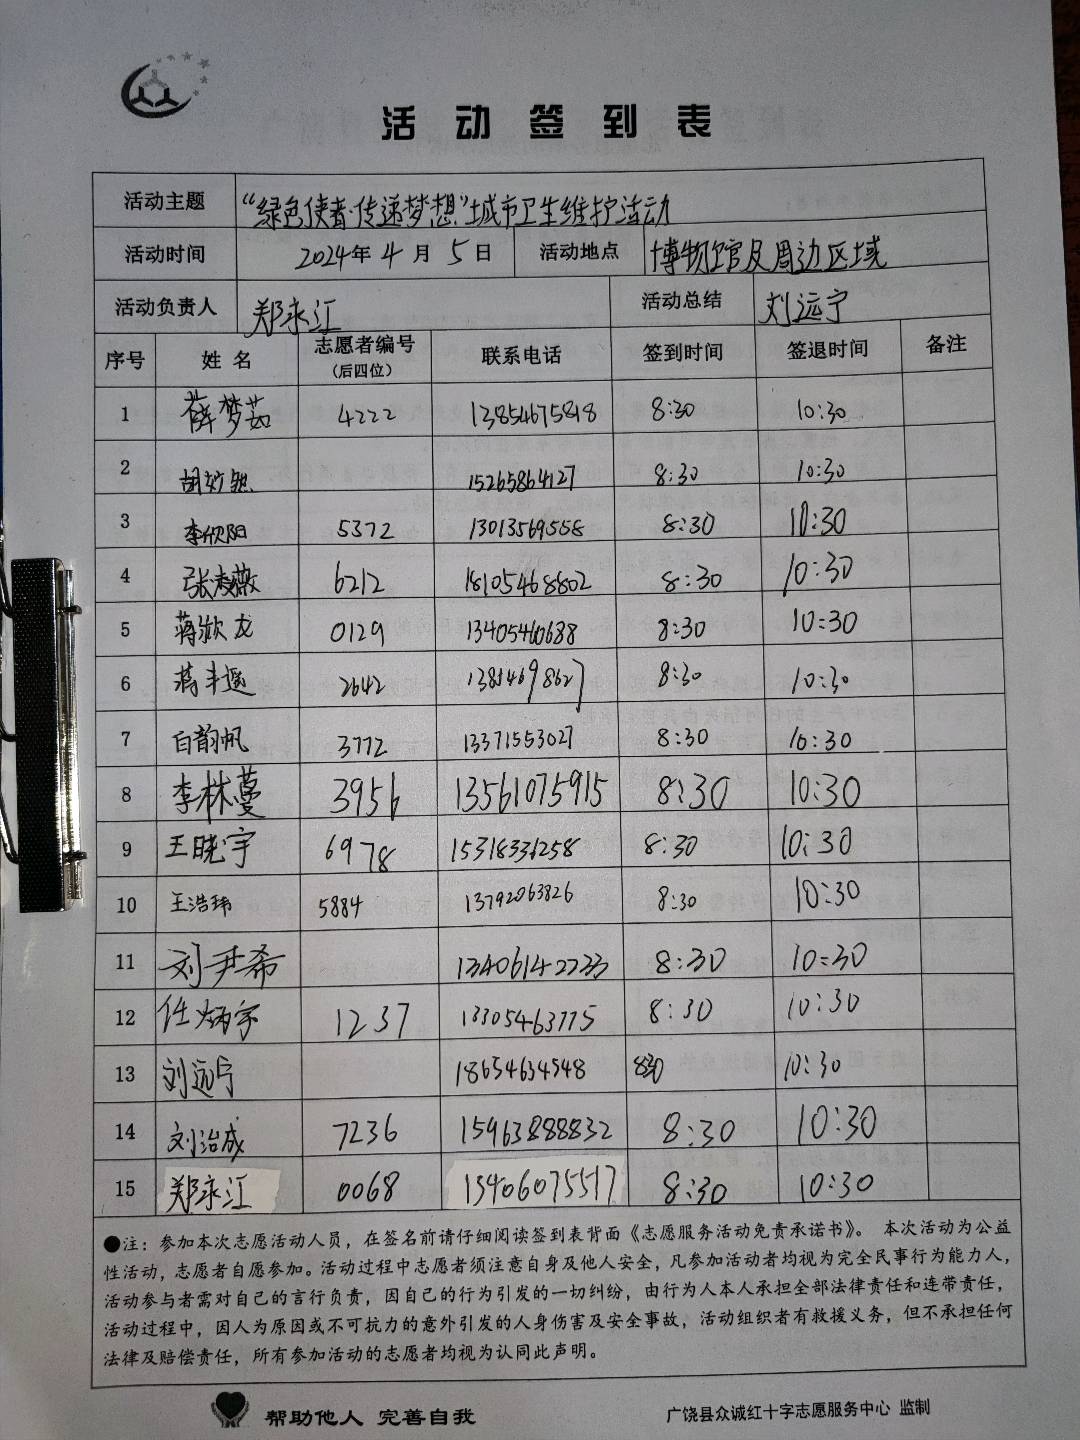 活动签到表
活动主题 “绿色使者·传递梦想”城市卫生维护活动
活动时间 2024年4月5日 活动地点 博物馆及周边区域
活动负责人 郑永江 活动总结 刘远宁
序号 姓名 志愿者编号（后四位） 联系电话 签到时间 签退时间 备注
1 薛梦茹 4222 13854675818 8:30 10:30
2 胡 15265864127 8:30 10:30
3 李欣阳 5372 13013569558 8:30 10:30
4 张凌薇 6212 18105468802 8:30 10:30
5 蒋歆龙 0129 13405460688 8:30 10:30
6 蒋丰遥 2642 8:30 10:30
7 白韵帆 3772 13371553027 8:30 10:30
8 李林蔓 3956 13561075915 8:30 10:30
9 王晓宇 6978 15318336258 8:30 10:30
10 王浩玮 5884 13792063826 8:30 10:30
11 刘尹希 13406142233 8:30 10:30
12 任炳宇 1237 13305463775 8:30 10:30
13 刘远宁 18654634548 830 10:30
14 刘治成 7236 15963888832 8:30 10:30
15 郑永江 0068 13406075517 8:30 10:30
●注：参加本次志愿活动人员，在签名前请仔细阅读签到表背面《志愿服务活动免责承诺书》。 本次活动为公益
性活动，志愿者自愿参加。活动过程中志愿者须注意自身及他人安全，凡参加活动者均视为完全民事行为能力人，
活动参与者需对自己的言行负责，因自己的行为引发的一切纠纷，由行为人本人承担全部法律责任和连带责任，
活动过程中，因人为原因或不可抗力的意外引发的人身伤害及安全事故，活动组织者有救援义务，但不承担任何
法律及赔偿责任，所有参加活动的志愿者均视为认同此声明。
帮助他人 完善自我 广饶县众诚红十字志愿服务中心 监制